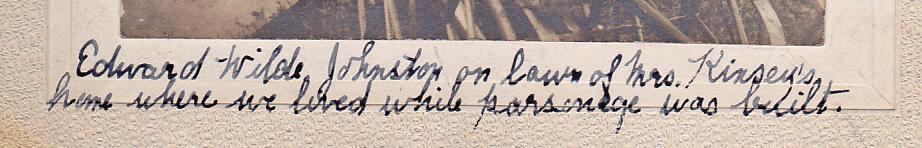 Edward Wilde Johnston on lawn of Mrs. Kinsey's
home where we lived while parsonege was built.